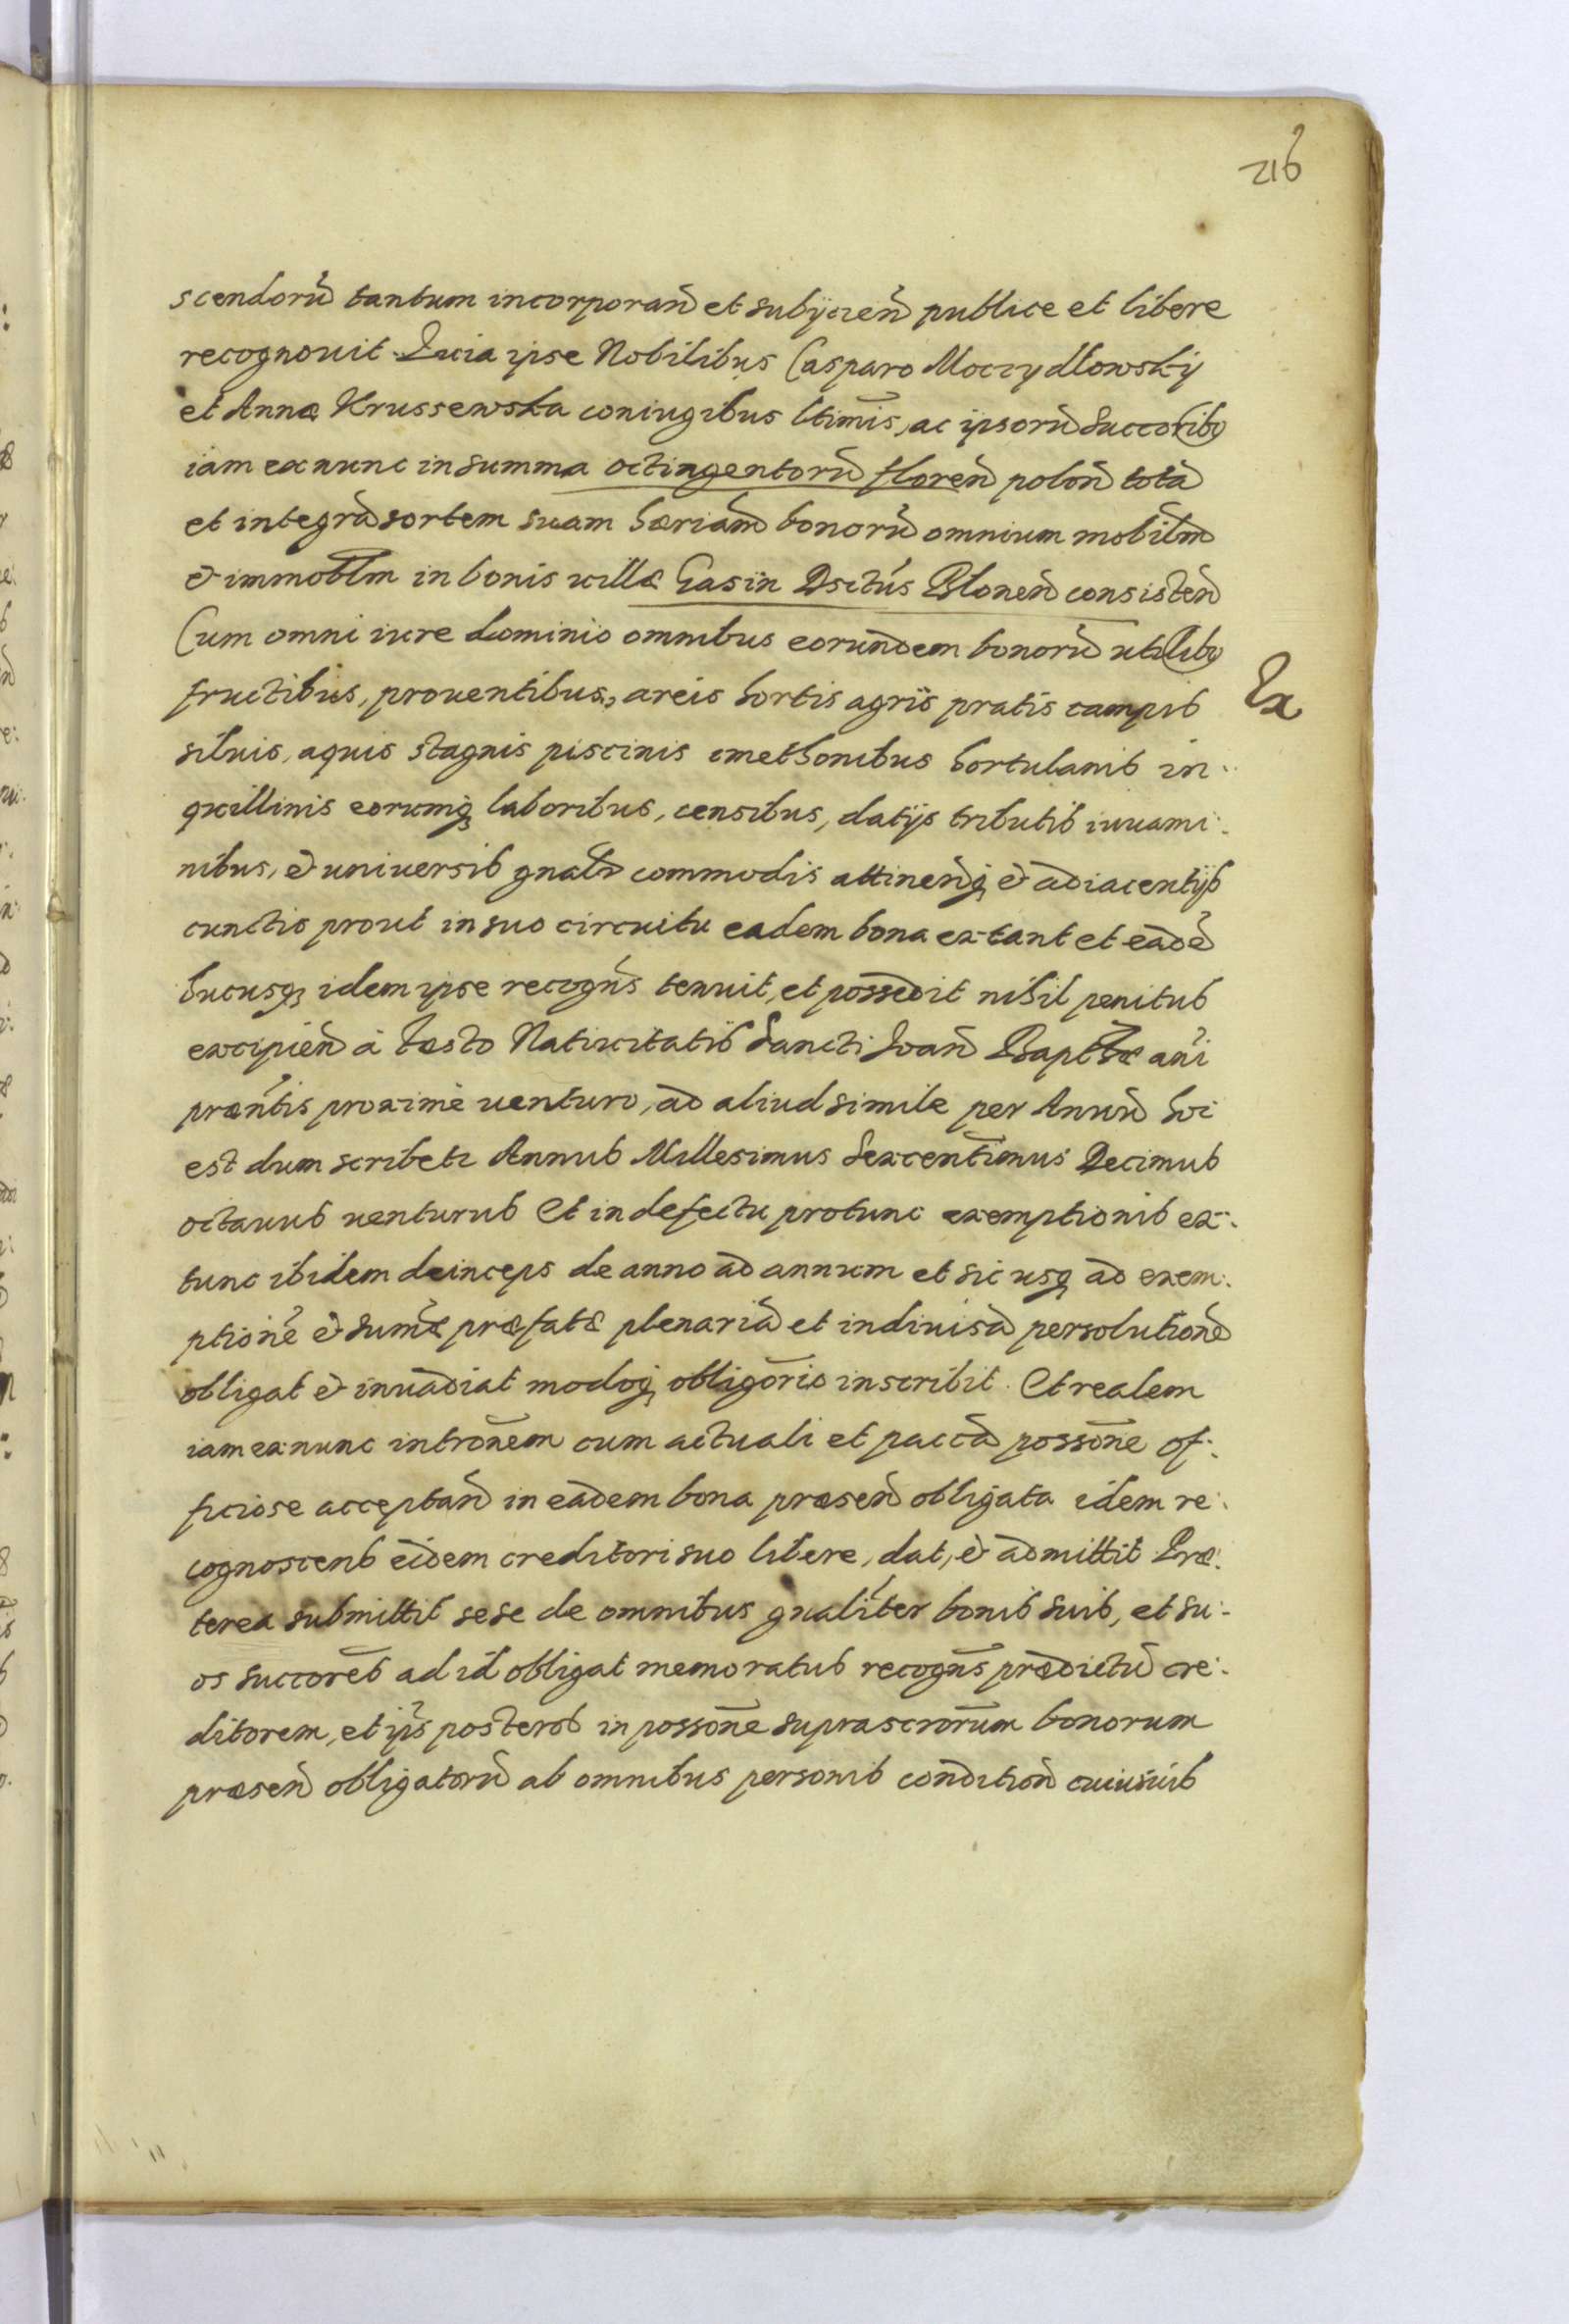 216
scendorũ tantum incorporañ et subÿcieñ publice et libere
recognouit Quia ipse Nobilibus Casparo Moczydłowskÿ
et Annæ Krussewska coniugibus ltimis, ac ipsorũ Succoribꝯ
iam ex nunc in summa octingentorũ floreñ poloñ totã
et integrã sortem suam hæriam bonorũ omnium mobilm
& immoblm in bonis uillæ Gasin Dsctus Bloneñ consisteñ
Cum omni iure dominio omnibus eorundem bonorũ utilibꝯ
fructibus, prouentibus, areis hortis agris pratis campis
siluis, aquis stagnis piscinis cmethonibus hortulanis in
Ex
quillinis eorumq₃ laboribus, censibus, datÿs tributis iuuami
nibus, & universis gnalr commodis attineñq₃ & adiacentÿs
cunctis prout in suo circuitu eadem bona extant et eadẽ
hucusq₃ idem ipse recogns tenuit, et possedit nihil penitus
excipieñ à festo Natiuitatis Sancti Joañ Baptæ ani
præntis proximè uenturo, ad aliud simile per Annũ hoc
est dum scribetr Annus Millesimus Sexcentimus Decimus
octauus uenturus Et in defectu protunc exemptionis ex:
tunc ibidem deinceps de anno ad annum et sic usq₃ ad exem:
ptionẽ & sumæ præfatæ plenariã et indiuisã persolutionẽ
obligat & inuadiat modoq₃ obligorio inscribit. Et realem
iam ex nunc intronem cum actuali et paccã possone of:
ficiose acceptañ in eadem bona præseñ obligata idem re:
cognoscens eidem creditori suo libere, dat, & admittit Præ:
terea submittit sese de omnibus gnaliter bonis suis, et su:
os succores ad id obligat memoratus recogns prædictũ cre:
ditorem, et ips posteros in possone suprascrorum bonorum
præseñ obligatorũ ab omnibus personis conditioñ cuiusuis